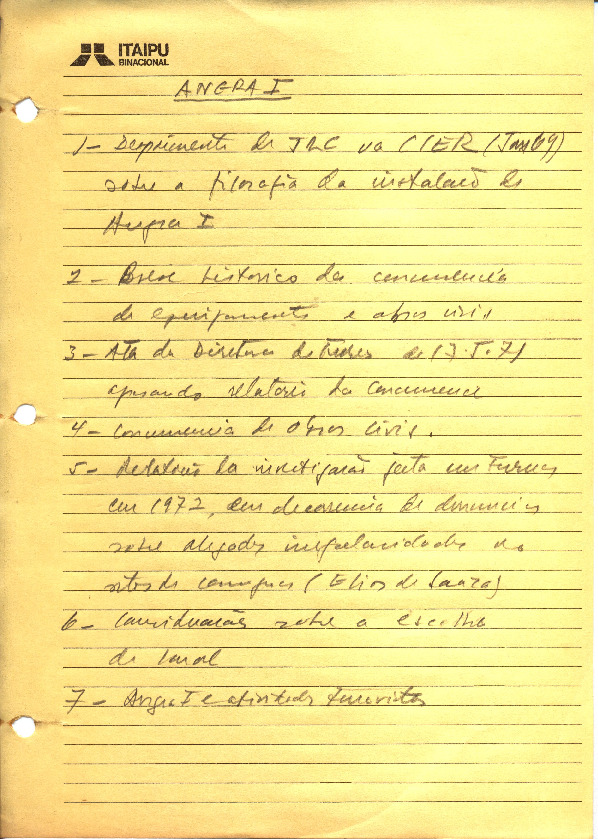 ITAIPU
BINACIONAL
ANGRA I
1- Depoimento de JLC na CIER (Jun 69)
sobre a filosofia da instalação de
Angra I
2- Breve historico da concorrencia
de equipamento e obras civis
3- Ata da Diretoria de Furnas de 17.5.71
aprovando relatorio da concorrencia
4- Concorrencia de obras civis.
5- Relatorio da investigação feita em Furnas
em 1972, em decorrencia de denuncias
sobre alegadas irregularidades no
setor de compras (Elios de Souza)
6- Considerações sobre a escolha
do local
7- Angra I e atividades terroristas